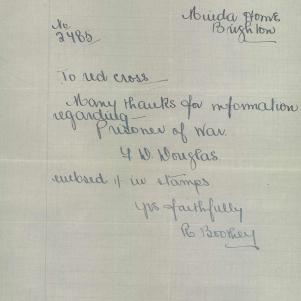 No
3485
Minda Home
Brighton
To red cross
Many thanks for information
regarding
Prisoner of War.
Douglas
enclosed 1/ in stamps
yrs faithfully
R